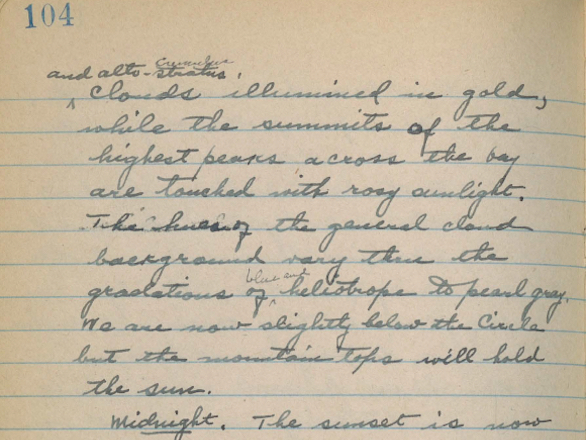 104
cumulus
and alto-stratus
clouds illumined in gold,
while the summits of the
highest peaks across the bay
are touched with rosy sunlight.
The hues of the general cloud
background vary thru the
blue and
gradations of heliotrope to pearl gray.
We are now slightly below the Circle
but the mountain tops will hold
the sun.
Midnight. The sunset is now